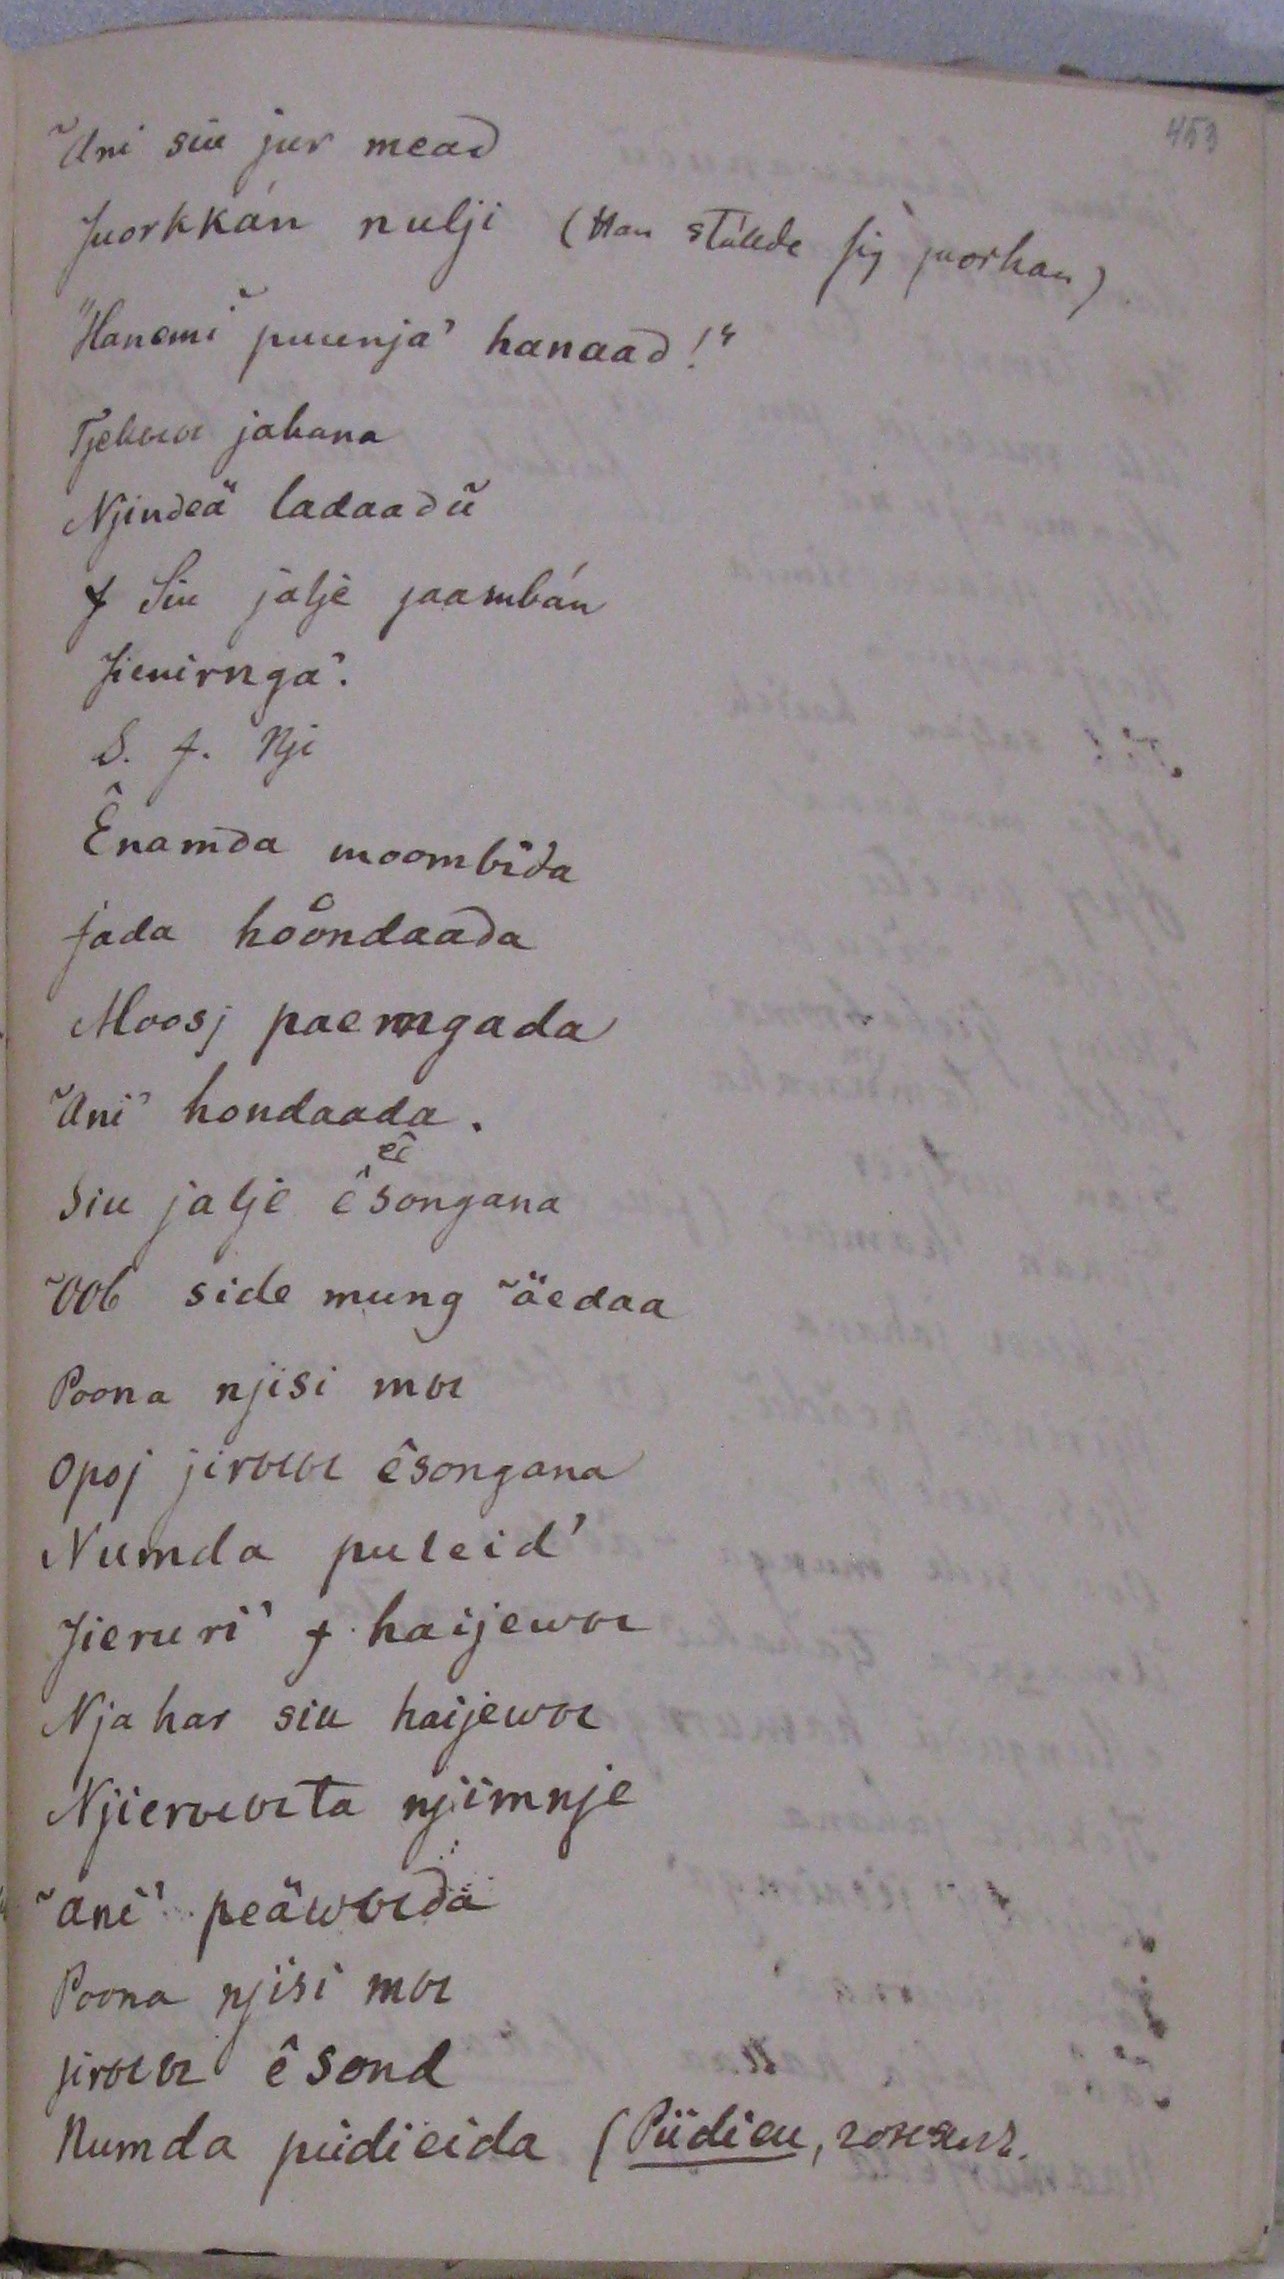 453
˜Ani siu jur mead
Juorkkán nulji (Han stälde sig juorkan)
"Hanemi ˜puunja' hanaad!"
Tjekыы jahana
Njindeä ladaadũ
f Siu jalje jaambán
Jienirnga'.
S. f. Nji
Ênamda moombida
jada hoôndaada
Moosj paerngada
˜Ani' hondaada.
Siu jalje êsongana
˜Oob side mung ˜äedaa
Poona njisi mы
Opoj jirыы êsongana
Numda puleid'
Jieruri' f haijewы
Njahar siu haijewы
Njierыыta njimnje
˜ani' peäwыda
Poona njisi mы
jirыы êsond
Numda piidieida (Piidieu,